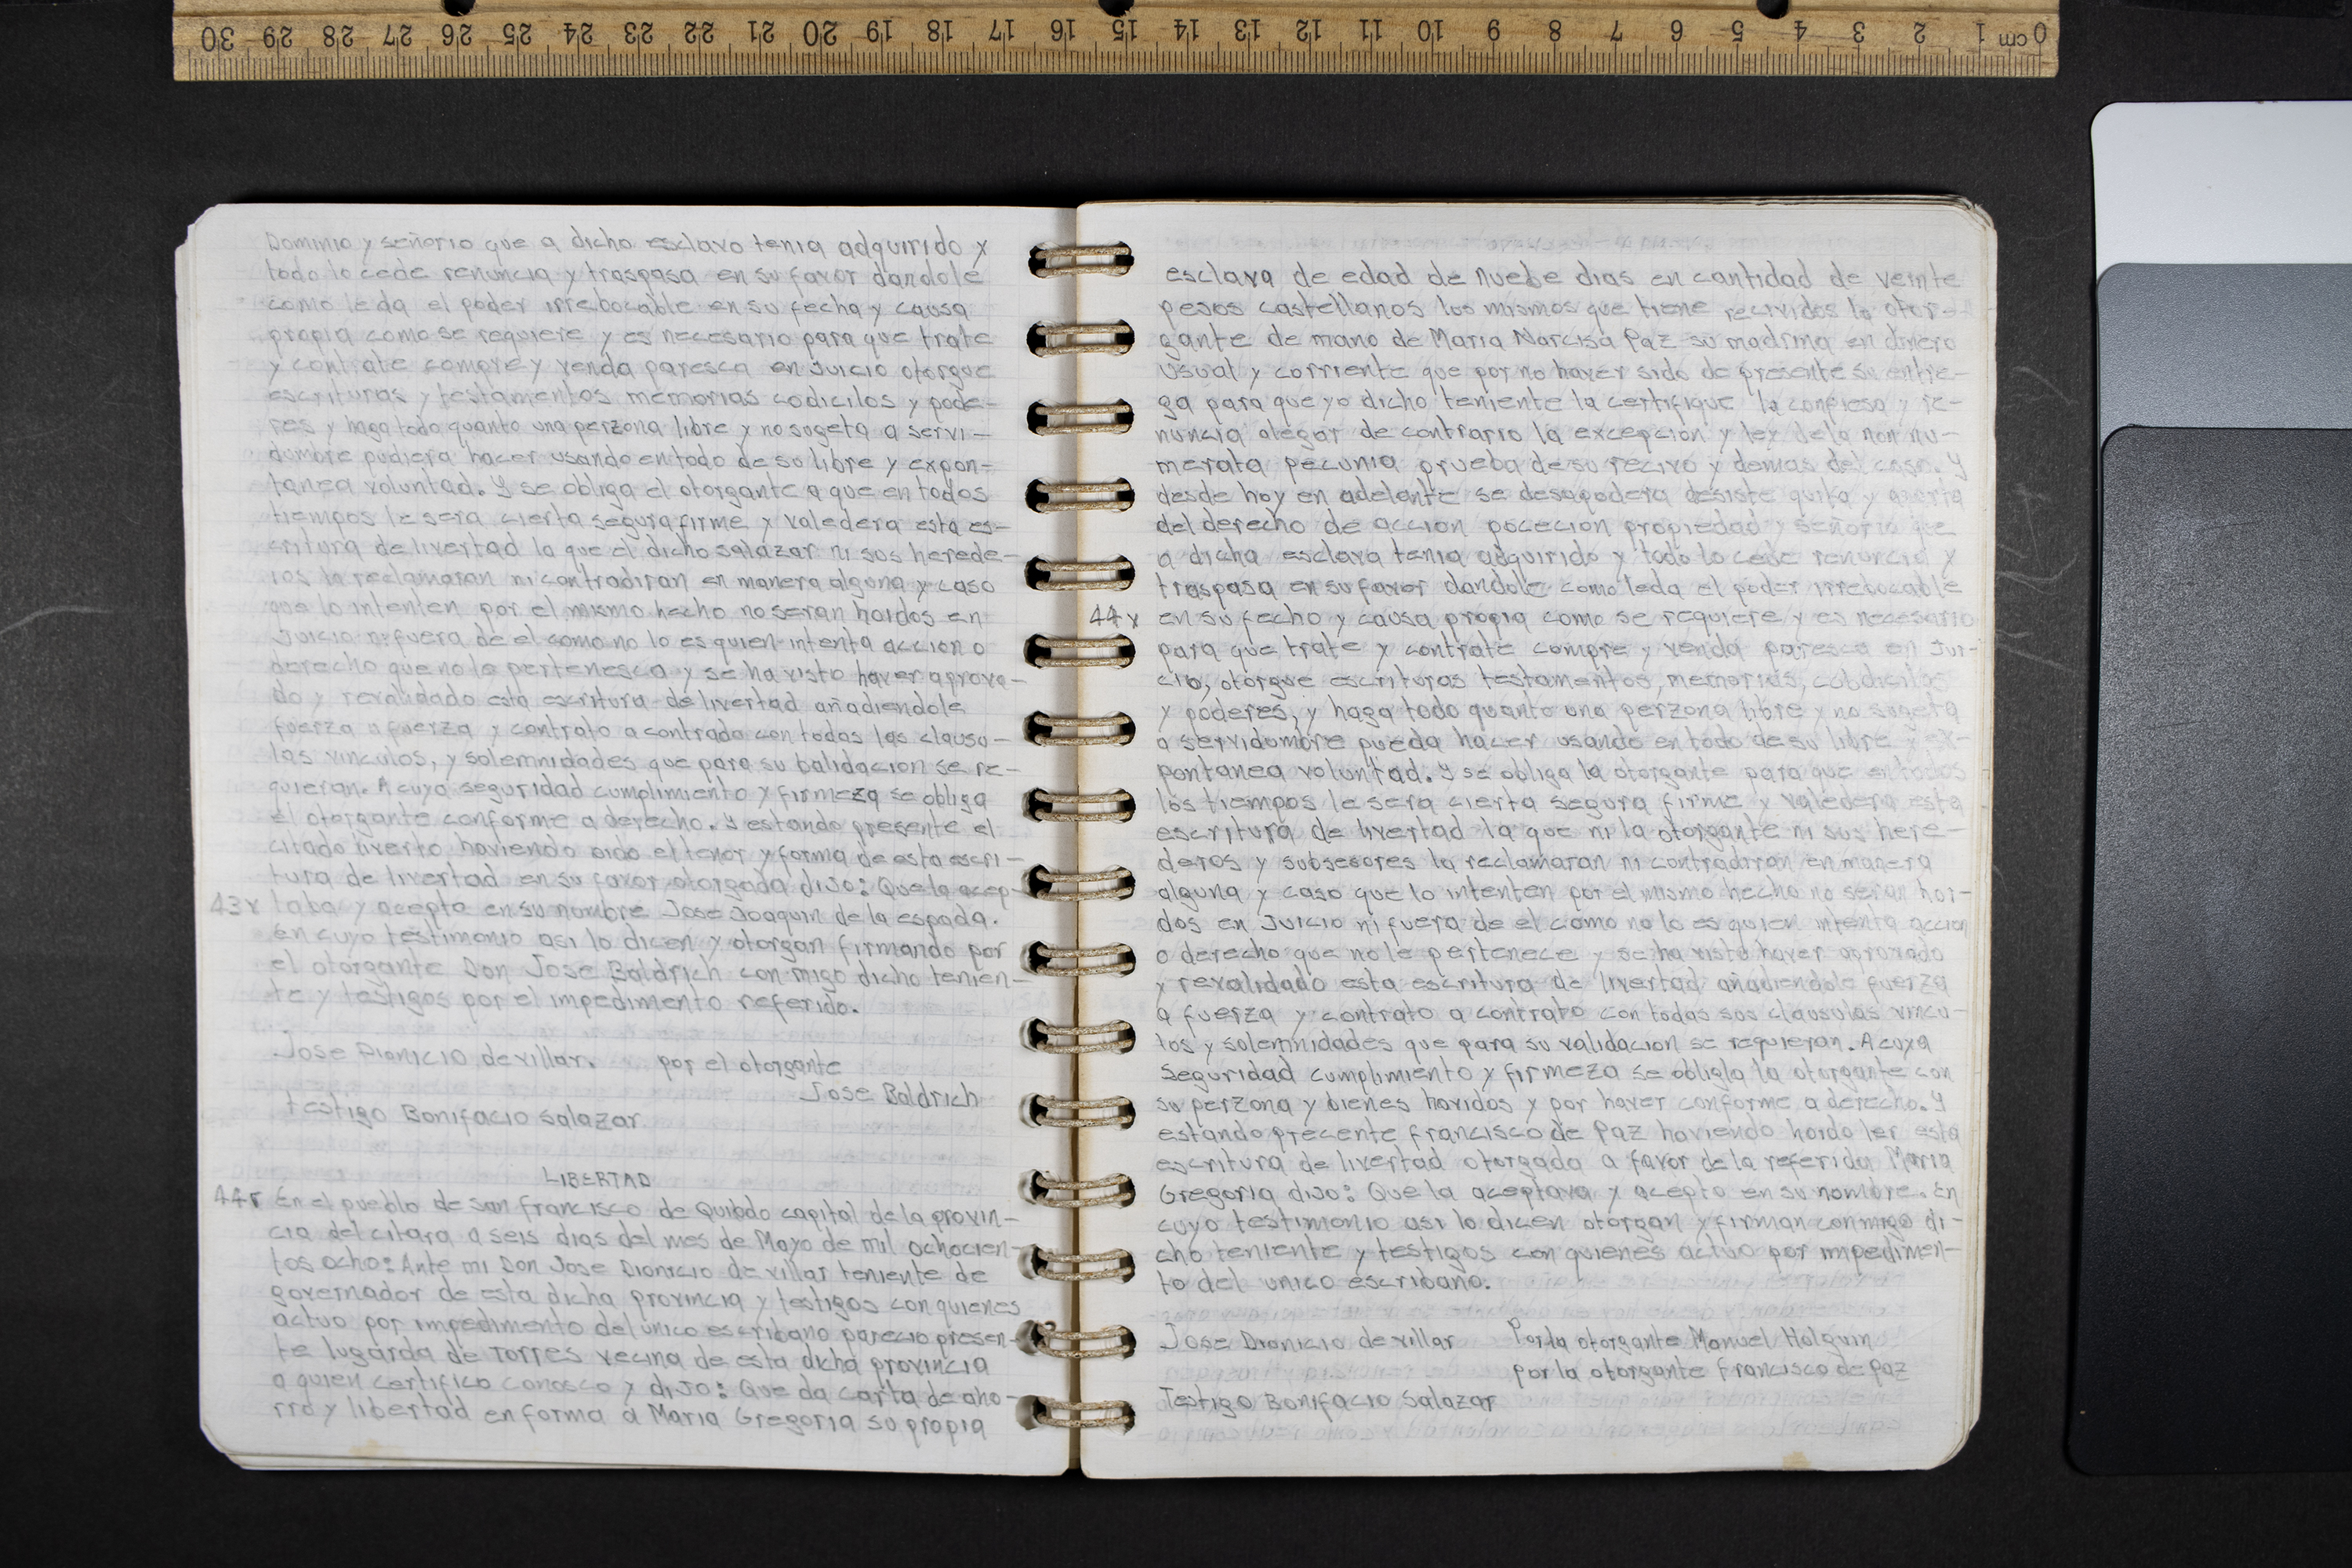 30 29 28 27 26 25 24 23 22 21 20 19 18 17 16 15 14 13 12 11 10 9 8 7 6 5 4 3 2 1 cm 0
Dominio y señorio que a dicho esclavo tenia adquirido y
todo lo cede renuncia y traspasa en su favor dandole
como le da el poder irrebocable en su fecha y causa
propia como se requiere y es necesario para que trate
y contrate compre y venda paresca en Juicio otorgue
escrituras y testamentos memorias codicilos y pode-
res y haga todo quanto una perzona libre y no sugeta a servi-
dumbre pudiera hacer usando en todo de su libre y expon-
tanea voluntad. Y se obliga el otorgante a que en todos
tiempos le sera cierta segura firme y valedera esta es-
critura de livertad la que el dicho Salazar ni sus herede-
ros la reclamaran ni contradiran en manera alguna y caso
que lo intenten por el mismo hecho no seran hoidos en
Juicio ni fuera de el como no lo es quien intenta accion o
derecho que no le pertenesca y se ha visto haver aprova-
do y revalidado esta escritura de livertad añadiendole
fuerza a fuerza y contrato a contrado con todas las clausu-
las vinculos, y solemnidades que para su balidacion se re-
quieran. A cuya seguridad cumplimiento y firmeza se obliga
el otorgante conforme a derecho. Y estando presente el
citado liverto haviendo oido el tenor y forma de esta escri-
tura de livertad en su favor otorgada diJo: Que la acep-
43v taba y acepto en su nombre Jose Joaquin de la espada.
En cuyo testimonio asi lo dicen y otorgan firmando por
el otorgante Don Jose Baldrich conmigo dicho tenien-
te y testigos por el impedimento referido.
Jose Dionicio de villar. por el otorgante
Jose Baldrich
testigo Bonifacio Salazar
LIBERTAD
44r En el pueblo de San Francisco de Quibdo capital de la provin-
cia del citara a seis dias del mes de Mayo de mil ochocien-
tos ocho: Ante mi Don Jose Dionicio de villar teniente de
governador de esta dicha provincia y testigos con quienes
actuo por impedimento del unico escribano parecio presen-
te lugarda de Torres vecina de esta dicha provincia
a quien certifico conosco y diJo: Que da carta de aho-
rro y libertad en forma a Maria Gregoria su propia
esclava de edad de nuebe dias en cantidad de veinte
pesos castellanos los mismos que tiene recividos la otor-
gante de mano de Maria Narcisa Paz su madrina en dinero
usual y corriente que por no haver sido de presente su entre-
ga para que yo dicho teniente la certifique la confiesa y re-
nuncia alegar de contrario la excepcion y ley dela non nu-
merata pecunia prueba de su recivo y demas del caso. Y
desde hoy en adelante se desapodera desiste quita y aparta
del derecho de accion pocecion propiedad y señorio que
a dicha esclava tenia adquirido y todo lo cede renuncia y
traspasa en su favor dandole como leda el poder irrebocable
44v en su fecho y causa propia como se requiere y es necesario
para que trate y contrate compre y venda paresca en Jui-
cio, otorgue escrituras testamentos, memorias, cobdicilos
y poderes, y haga todo quanto una perzona libre y no sugeta
a servidumbre pueda hacer usando en todo de su libre y ex-
pontanea voluntad. Y se obliga la otorgante para que en todos
los tiempos le sera cierta segura firme y valedera esta
escritura de livertad la que ni la otorgante ni sus here-
deros y subsesores la reclamaran ni contradiran en manera
alguna y caso que lo intenten por el mismo hecho no seran hoi-
dos en Juicio ni fuera de el como no lo es quien intenta accion
o derecho que no le pertenece y se ha visto haver aprovado
y revalidado esta escritura de livertad añadiendole fuerza
a fuerza y contrato a contrato con todas sus clausulas vincu-
los y solemnidades que para su validacion se requieran. A cuya
seguridad cumplimiento y firmeza se obligla la otorgante con
su perzona y bienes havidos y por haver conforme a derecho. Y
estando precente francisco de Paz haviendo hoido ler esta
escritura de livertad otorgada a favor de la referida Maria
Gregoria diJo: Que la aceptava y acepto en su nombre. En
cuyo testimonio asi lo dicen otorgan y firman conmigo di-
cho teniente y testigos con quienes actuo por impedimen-
to del unico escribano.
Jose Dionicio de villar Por la otorgante Manuel Holguin
por la otorgante francisco de Paz
Testigo Bonifacio Salazar